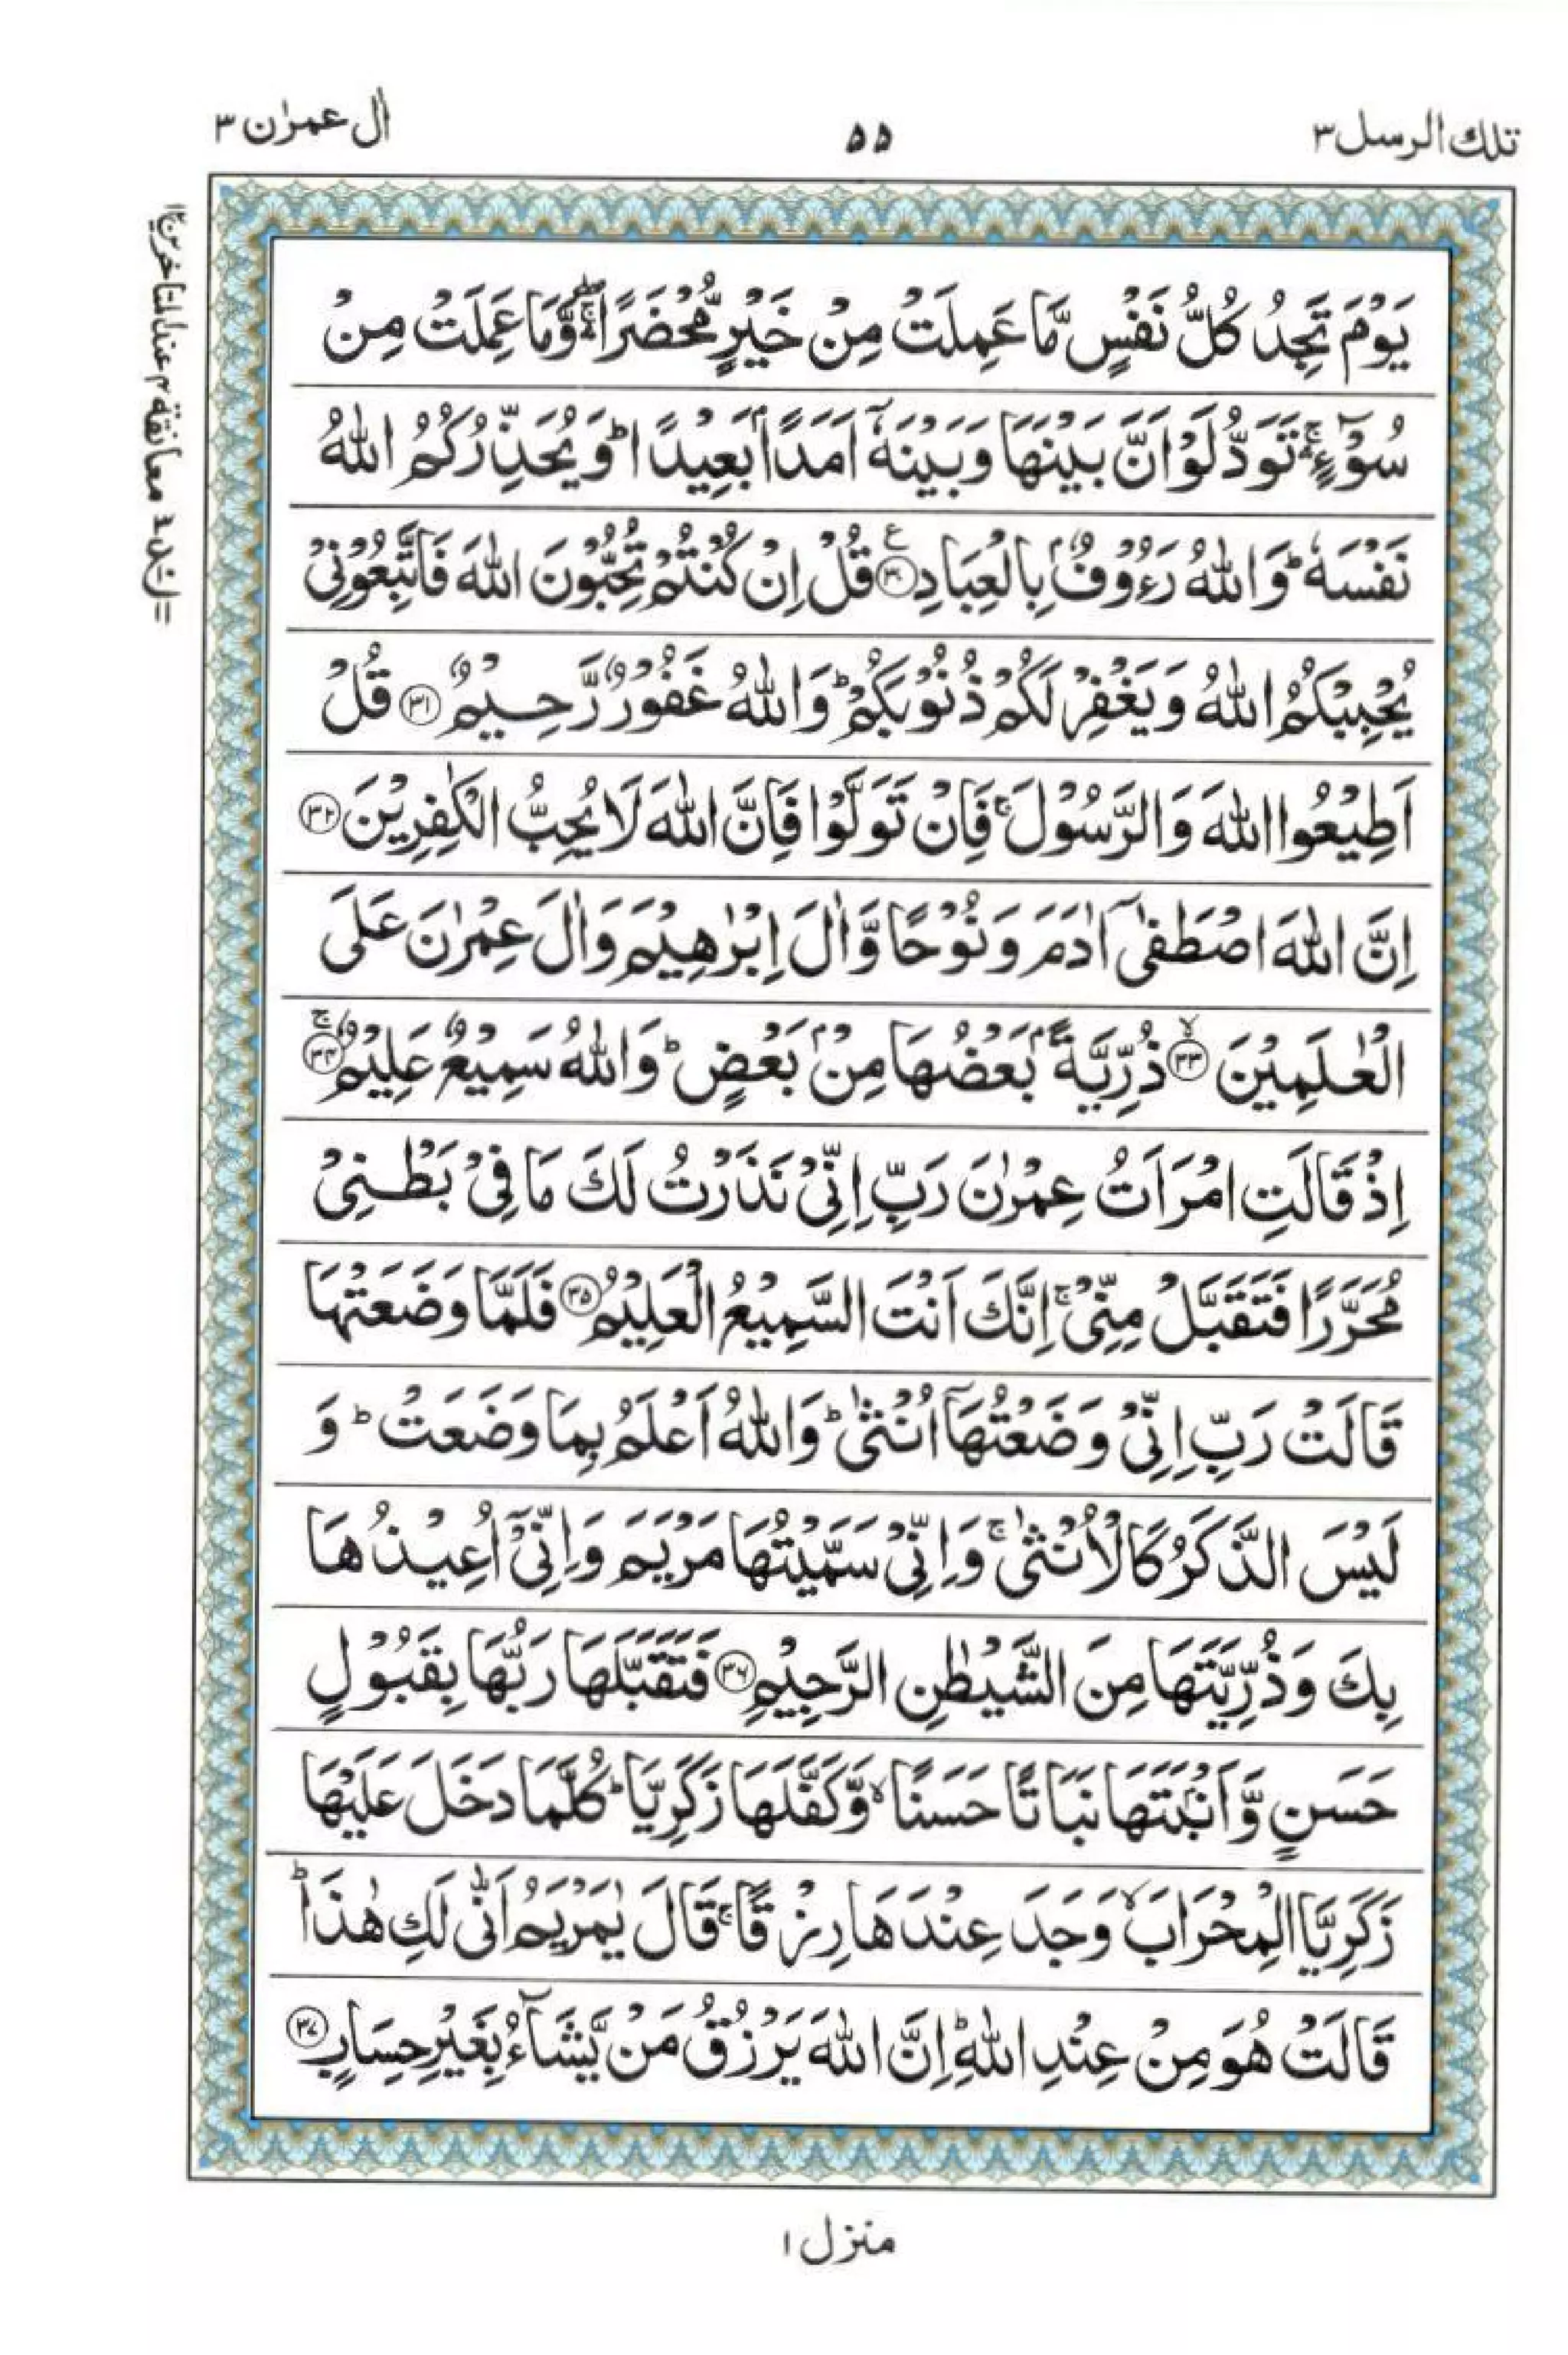 تلك الرسل ٣
۵۵
اٰل عمرٰن ٣
يَوْمَ تَجِدُ كُلُّ نَفْسٍ مَّا عَمِلَتْ مِنْ خَيْرٍ مُّحْضَرًا ۛۚۖ وَّمَا عَمِلَتْ مِنْ
سُوْٓءٍ ۛۚ تَوَدُّ لَوْ اَنَّ بَيْنَهَا وَبَيْنَهٗٓ اَمَدًاۢ بَعِيْدًا ؕ وَيُحَذِّرُكُمُ اللّٰهُ
نَفْسَهٗ ؕ وَاللّٰهُ رَءُوْفٌۢ بِالْعِبَادِ ﴿۳۰﴾ ع قُلْ اِنْ كُنْتُمْ تُحِبُّوْنَ اللّٰهَ فَاتَّبِعُوْنِيْ
يُحْبِبْكُمُ اللّٰهُ وَيَغْفِرْ لَكُمْ ذُنُوْبَكُمْ ؕ وَاللّٰهُ غَفُوْرٌ رَّحِيْمٌ ﴿۳۱﴾ قُلْ
اَطِيْعُوا اللّٰهَ وَالرَّسُوْلَ ۚ فَاِنْ تَوَلَّوْا فَاِنَّ اللّٰهَ لَا يُحِبُّ الْكٰفِرِيْنَ ﴿۳۲﴾
اِنَّ اللّٰهَ اصْطَفٰىٓ اٰدَمَ وَنُوْحًا وَّاٰلَ اِبْرٰهِيْمَ وَاٰلَ عِمْرٰنَ عَلَى
الْعٰلَمِيْنَ ﴿۳۳﴾ۙ ذُرِّيَّةًۢ بَعْضُهَا مِنْۢ بَعْضٍ ؕ وَاللّٰهُ سَمِيْعٌ عَلِيْمٌ ﴿۳۴﴾ۚ
اِذْ قَالَتِ امْرَاَتُ عِمْرٰنَ رَبِّ اِنِّيْ نَذَرْتُ لَكَ مَا فِيْ بَطْنِيْ
مُحَرَّرًا فَتَقَبَّلْ مِنِّيْ ۚ اِنَّكَ اَنْتَ السَّمِيْعُ الْعَلِيْمُ ﴿۳۵﴾ فَلَمَّا وَضَعَتْهَا
قَالَتْ رَبِّ اِنِّيْ وَضَعْتُهَاۤ اُنْثٰى ؕ وَاللّٰهُ اَعْلَمُ بِمَا وَضَعَتْ ؕ وَ
لَيْسَ الذَّكَرُ كَالْاُنْثٰى ۚ وَاِنِّيْ سَمَّيْتُهَا مَرْيَمَ وَاِنِّيْۤ اُعِيْذُهَا
بِكَ وَذُرِّيَّتَهَا مِنَ الشَّيْطٰنِ الرَّجِيْمِ ﴿۳۶﴾ فَتَقَبَّلَهَا رَبُّهَا بِقَبُوْلٍ
حَسَنٍ وَّاَنْۢبَتَهَا نَبَاتًا حَسَنًا ۙ وَّكَفَّلَهَا زَكَرِيَّا ؕ كُلَّمَا دَخَلَ عَلَيْهَا
زَكَرِيَّا الْمِحْرَابَ ۙ وَجَدَ عِنْدَهَا رِزْقًا ۚ قَالَ يٰمَرْيَمُ اَنّٰى لَكِ هٰذَا ؕ
قَالَتْ هُوَ مِنْ عِنْدِ اللّٰهِ ؕ اِنَّ اللّٰهَ يَرْزُقُ مَنْ يَّشَآءُ بِغَيْرِ حِسَابٍ ﴿۳۷﴾
معانقة ٣ عند المتاخرين ١٢
منزل ١